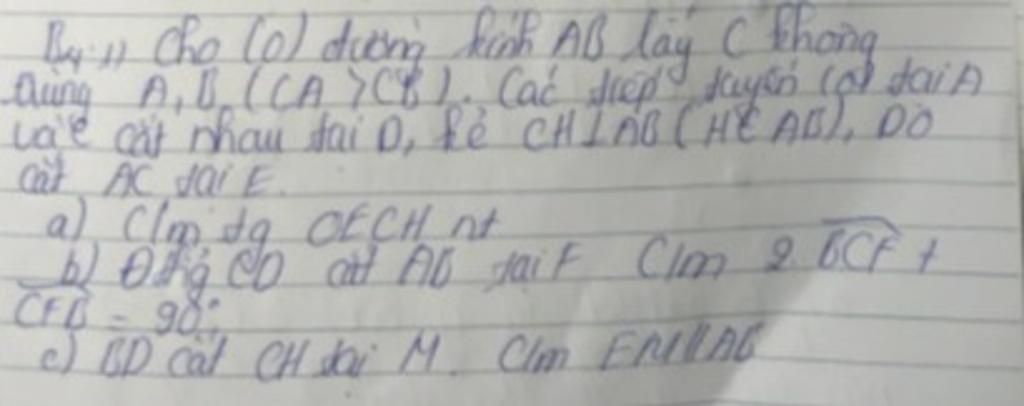 Bài 1) Cho (O) đường kính AB lấy C không
trùng A, B (CA > CB). Các tiếp tuyến (O) tại A
và C cắt nhau tại D, kẻ CH⊥AB (H∈AB), DO
cắt AC tại E.
a) C/m tg OECH nt
b) Đthg CD cắt AB tại F C/m 2 BCF +
CFB = 90°.
c) BD cắt CH tại M. C/m EM//AB